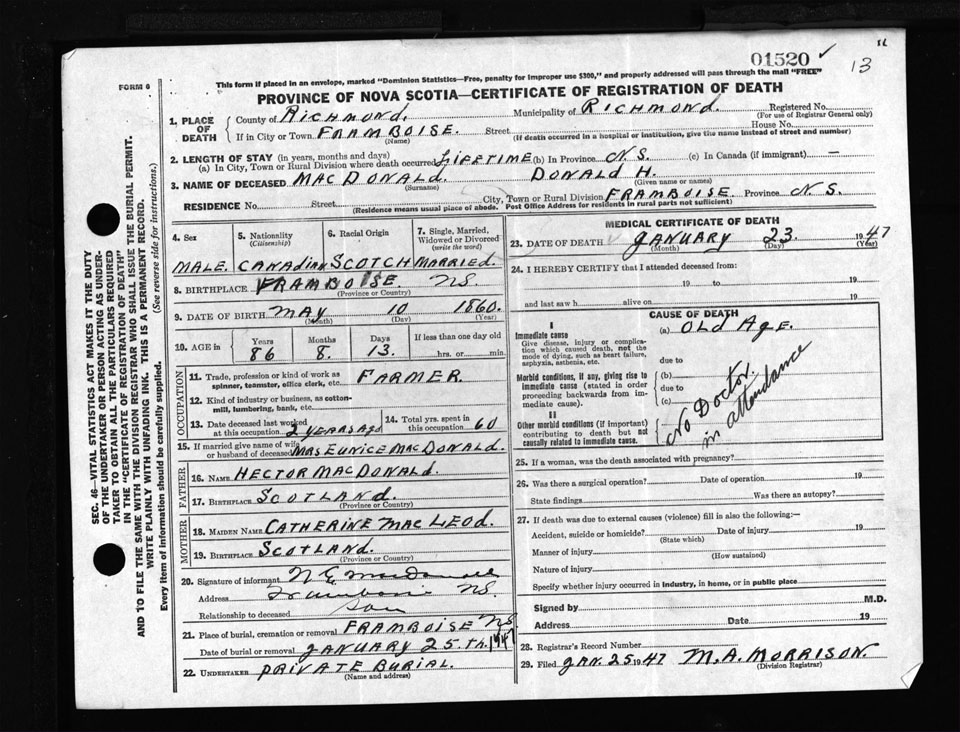 11
01520 ✓
13
FORM 6
This form if placed in an envelope, marked "Dominion Statistics—Free, penalty for improper use $300," and properly addressed will pass through the mail "FREE"
PROVINCE OF NOVA SCOTIA—CERTIFICATE OF REGISTRATION OF DEATH
1. PLACE OF DEATH
County of RICHMOND. Municipality of RICHMOND. Registered No.
(For use of Registrar General only)
If in City or Town FRAMBOISE. Street House No.
(Name) (If death occurred in a hospital or institution, give the name instead of street and number)
2. LENGTH OF STAY (in years, months and days)
(a) In City, Town or Rural Division where death occurred LIFETIME (b) In Province N.S. (c) In Canada (if immigrant) —
3. NAME OF DECEASED MACDONALD. DONALD H.
(Surname) (Given name or names)
RESIDENCE No. Street City, Town or Rural Division FRAMBOISE. Province N.S.
(Residence means usual place of abode. Post Office Address for residents in rural parts not sufficient)
4. Sex
MALE.
5. Nationality
(Citizenship)
CANADIAN
6. Racial Origin
SCOTCH
7. Single, Married, Widowed or Divorced
(write the word)
MARRIED.
8. BIRTHPLACE FRAMBOISE. N.S.
(Province or Country)
9. DATE OF BIRTH MAY 10 1860.
(Month) (Day) (Year)
10. AGE in Years Months Days If less than one day old
86 8. 13. hrs. or min.
OCCUPATION
11. Trade, profession or kind of work as spinner, teamster, office clerk, etc. FARMER.
12. Kind of industry or business, as cotton-mill, lumbering, bank, etc.
13. Date deceased last worked at this occupation 2 YEARS AGO
14. Total yrs. spent in this occupation 60
15. If married give name of wife or husband of deceased MRS EUNICE MACDONALD.
FATHER
16. NAME HECTOR MACDONALD.
17. BIRTHPLACE SCOTLAND.
MOTHER
18. MAIDEN NAME CATHERINE MACLEOD.
19. BIRTHPLACE SCOTLAND.
(Province or Country)
20. Signature of informant MacDonald
Address Framboise N.S.
Relationship to deceased Son
21. Place of burial, cremation or removal FRAMBOISE N.S.
Date of burial or removal JANUARY 25.TH. 1947
22. UNDERTAKER PRIVATE BURIAL.
(Name and address)
MEDICAL CERTIFICATE OF DEATH
23. DATE OF DEATH JANUARY 23. 1947
(Month) (Day) (Year)
24. I HEREBY CERTIFY that I attended deceased from:
19 to 19
and last saw h alive on 19
CAUSE OF DEATH
I
Immediate cause
Give disease, injury or complication which caused death, not the mode of dying, such as heart failure, asphyxia, asthenia, etc.
(a) OLD AGE.
due to
Morbid conditions, if any, giving rise to immediate cause (stated in order proceeding backwards from immediate cause).
(b)
due to
(c)
II
Other morbid conditions (if important) contributing to death but not causally related to immediate cause.
No Doctor.
in attendance
25. If a woman, was the death associated with pregnancy?
26. Was there a surgical operation? Date of operation 19
State findings Was there an autopsy?
27. If death was due to external causes (violence) fill in also the following:—
Accident, suicide or homicide? Date of injury 19
(State which)
Manner of injury
(How sustained)
Nature of injury
Specify whether injury occurred in industry, in home, or in public place
Signed by M.D.
Address Date 19
28. Registrar's Record Number
29. Filed JAN. 25 1947 M.A. MORRISON.
(Division Registrar)
SEC. 46—VITAL STATISTICS ACT MAKES IT THE DUTY
OF THE UNDERTAKER OR PERSON ACTING AS UNDER-
TAKER TO OBTAIN ALL THE PARTICULARS REQUIRED
IN THE "CERTIFICATE OF REGISTRATION OF DEATH"
AND TO FILE THE SAME WITH THE DIVISION REGISTRAR WHO SHALL ISSUE THE BURIAL PERMIT.
WRITE PLAINLY WITH UNFADING INK. THIS IS A PERMANENT RECORD.
Every item of information should be carefully supplied. (See reverse side for instructions.)